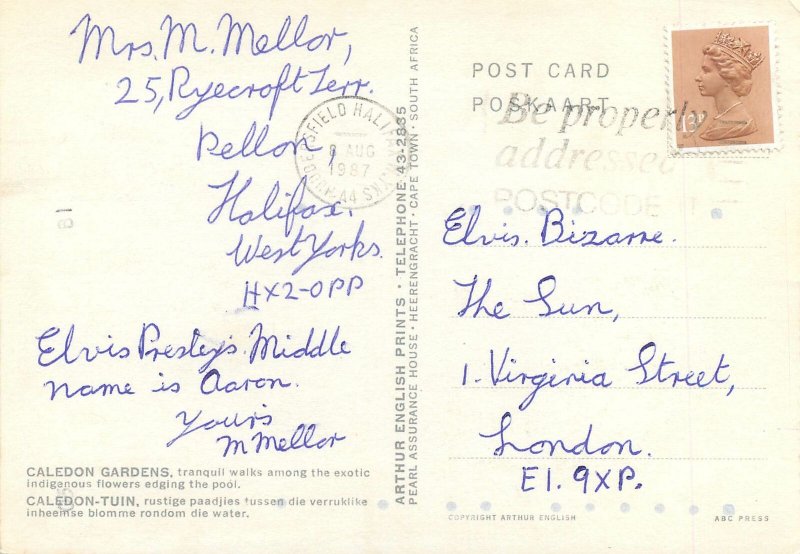 Mrs. M. Mellor,
25, Ryecroft Terr.
Pellon,
Halifax.
West Yorks.
HX2-0PP
Elvis Presley's Middle
name is Aaron.
Yours
M Mellor
CALEDON GARDENS, tranquil walks among the exotic
indigenous flowers edging the pool.
CALEDON-TUIN, rustige paadjies tussen die verruklike
inheemse blomme rondom die water.
ARTHUR ENGLISH PRINTS · TELEPHONE 43-2835
PEARL ASSURANCE HOUSE · HEERENGRACHT · CAPE TOWN · SOUTH AFRICA
HUDDERSFIELD HALIFAX
8 AUG
1987
POST CARD
POSKAART
Be properly
addressed
POSTCODE IT
13P
Elvis. Bizarre.
The Sun,
1. Virginia Street,
London.
E1. 9XP.
COPYRIGHT ARTHUR ENGLISH
ABC PRESS